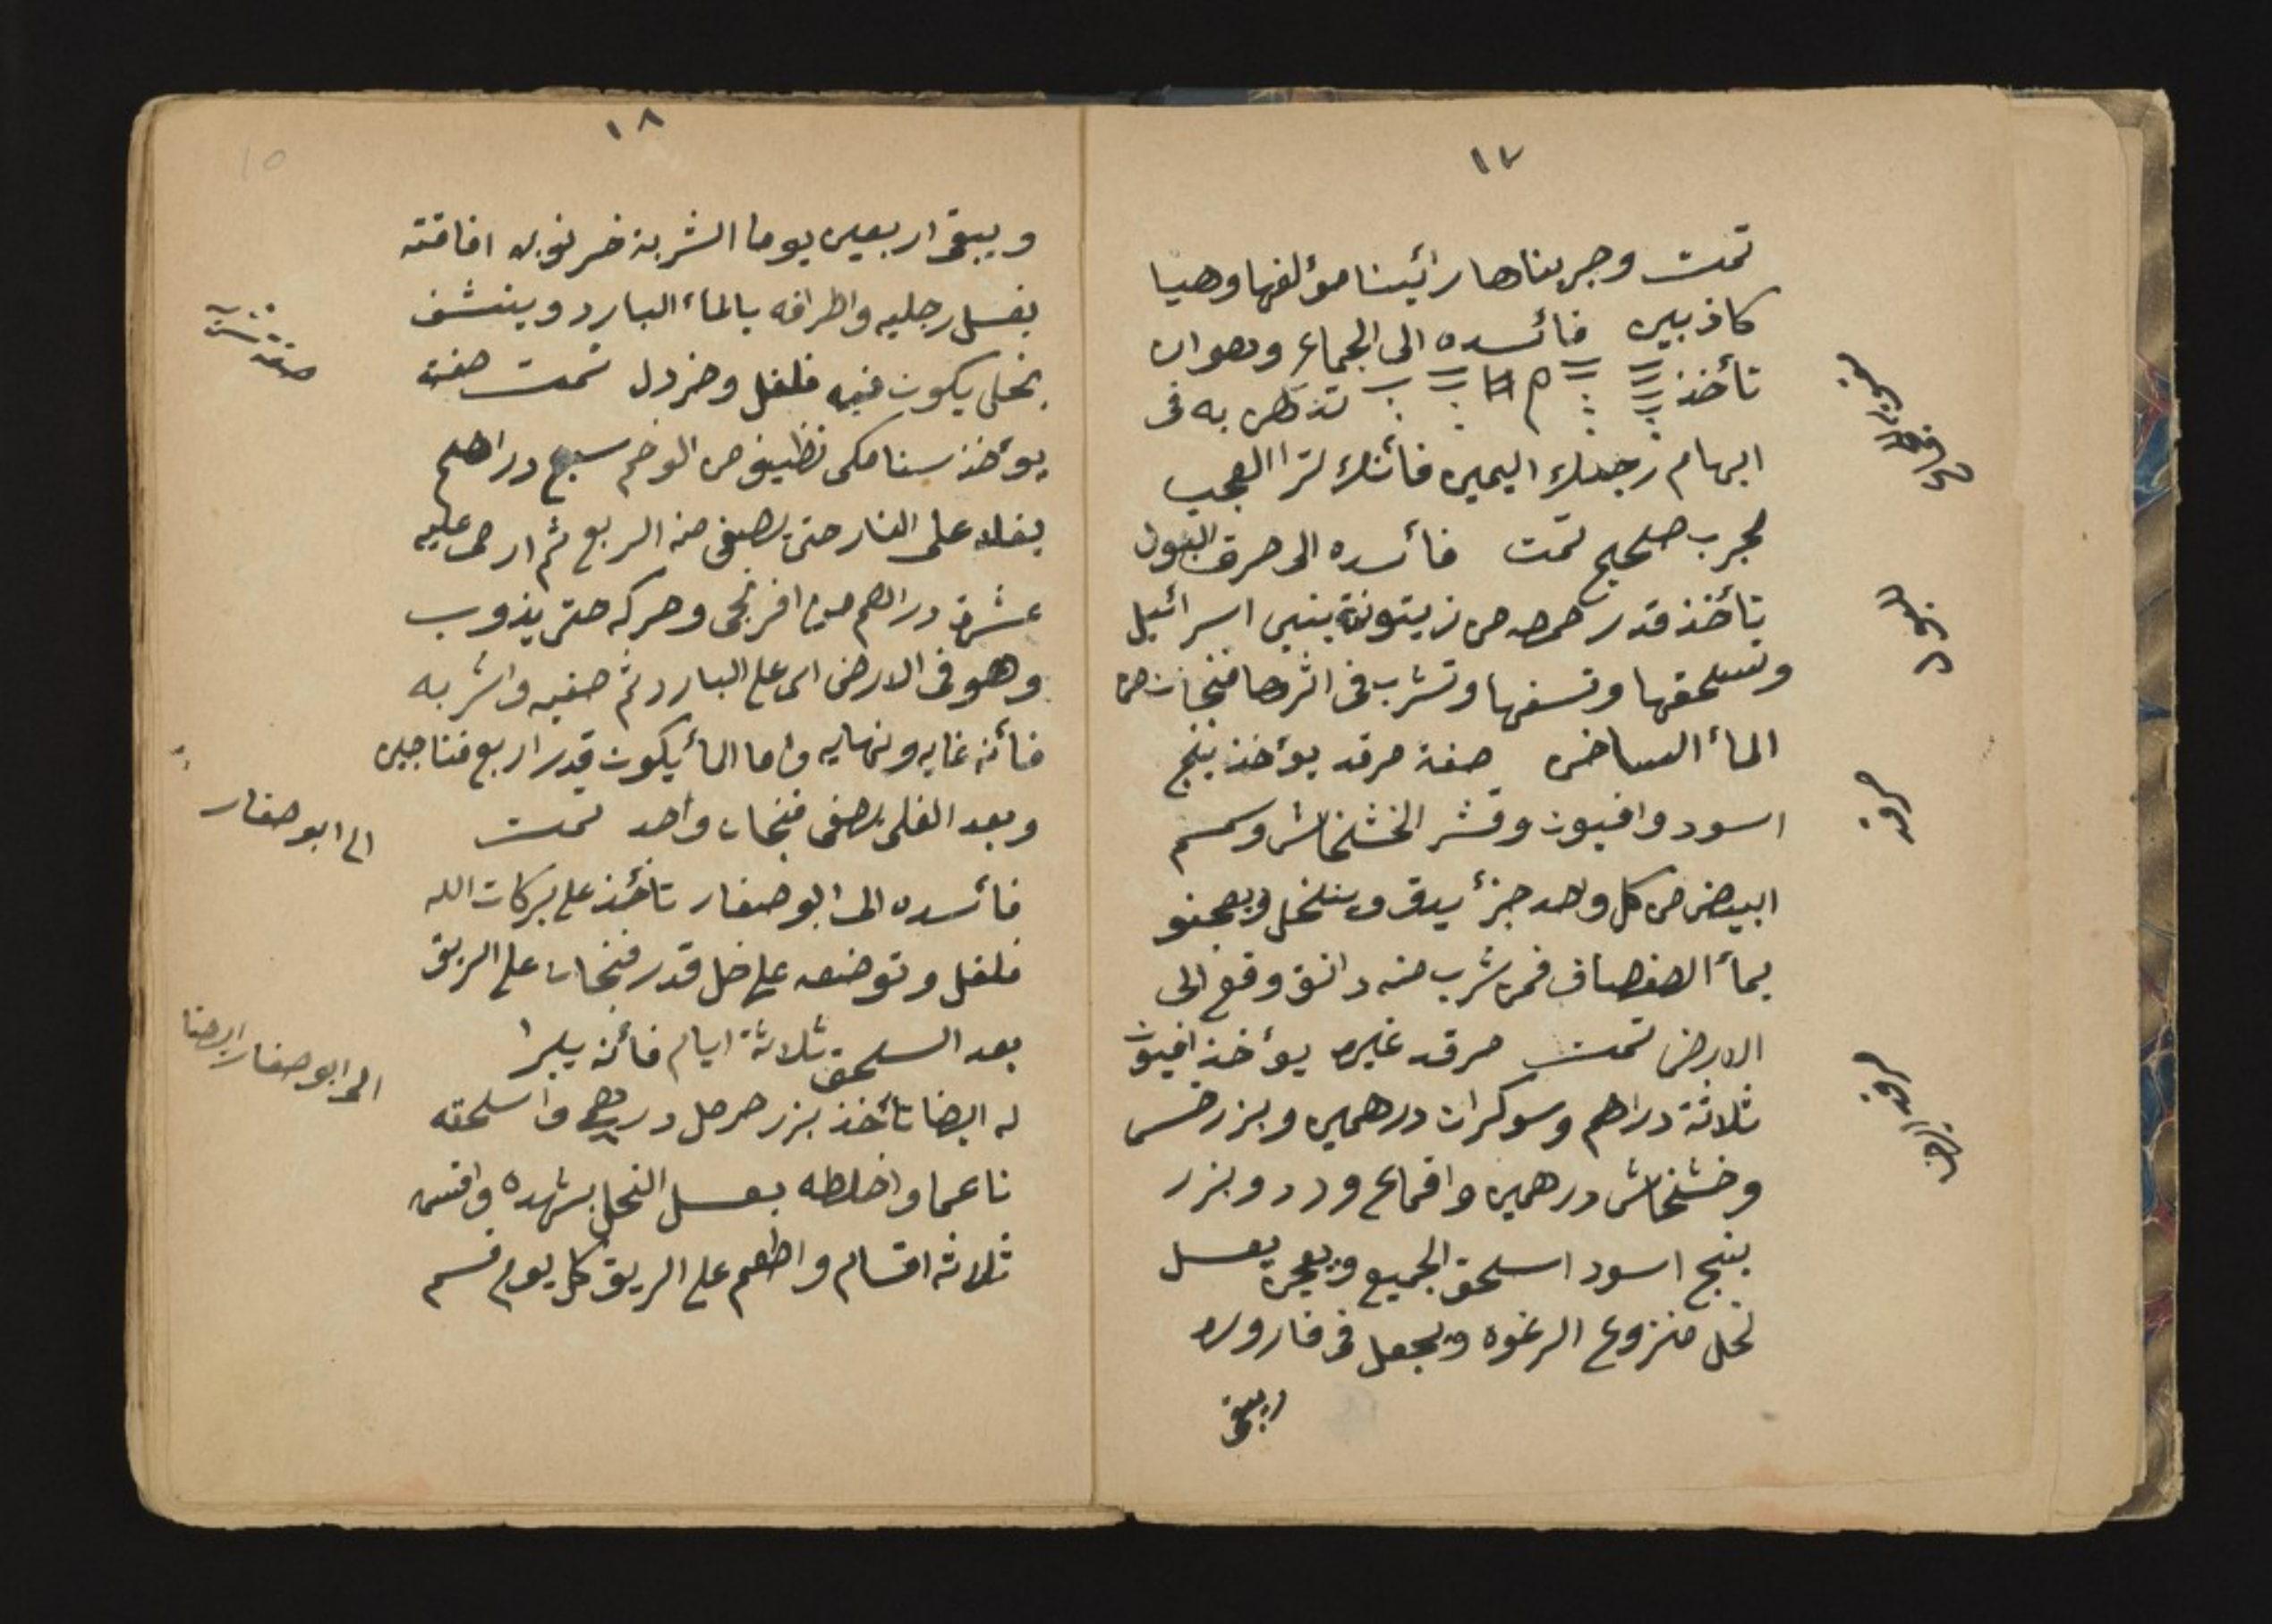 ١٧
تمت وجربناها رائينا مؤلفها وهيا
كاذبين فائسده الى الجماع وهوان
تأخذ تدهن به فى
ابهام رجلك اليمين فأنك ترا العجب
مجرب صحيح تمت فائسده الى حرق البول
تأخذ قدر حمصه من زيتونة بنى اسرائيل
وتسحقها وتسفها وتشرب فى اثرها فنجان من
المأ الساخن صفة مرقد يؤخذ بنج
اسود وافيون وقشر الخشخاش وسمسم
ابيض من كل وحد جزأ يدق وينخل ويعجنو
بمأ الصفصاف فمن شرب منه دانق وقع الى
الارض تمت مرقد غيره يؤخذ افيون
ثلاثة دراهم وسوكران درهمين وبزر خس
وخشخاش درهمين واقماع ورد وبزر
بنج اسود اسحق الجميع ويعجن بعسل
نحل منزوع الرغوه ويجعل فى قاروره
ويبقى
للبول
مرقد
مرقد ايضا
١٨
10
ويبقى اربعين يوما الشربة خرنوبه افاقته
بغسل رجليه واطرافه بالماء البارد وينشف
بخل يكون فيه فلفل وخردل تمت صفة
يؤخذ سنامكى نظيف من الوخم سبع دراهم
يغلا على النار حتى يصفى منه الربع ثم ارمى عليه
عشرة دراهم من افرنجى وحركه حتى يذوب
وهو فى الارض اى على البارد ثم صفيه واشربه
فأنه غايه ونهايه واما المأ يكون قدر اربع فناجين
وبعد الغلى يصفى فنجان واحد تمت
فائسده الى ابو صفار تأخذ على بركات الله
فلفل وتوضعه على خل قدر فنجان على الريق
بعد السحق ثلاثة ايام فأنه يبرا
له ايضا تأخذ بزر حرمل درهم واسحقه
ناعما واخلطه بعسل النحل بشهده واقسم
ثلاثه اقسام واطعم على الريق كل يوم قسم
الى ابو صفار
الى ابو صفار ايضا